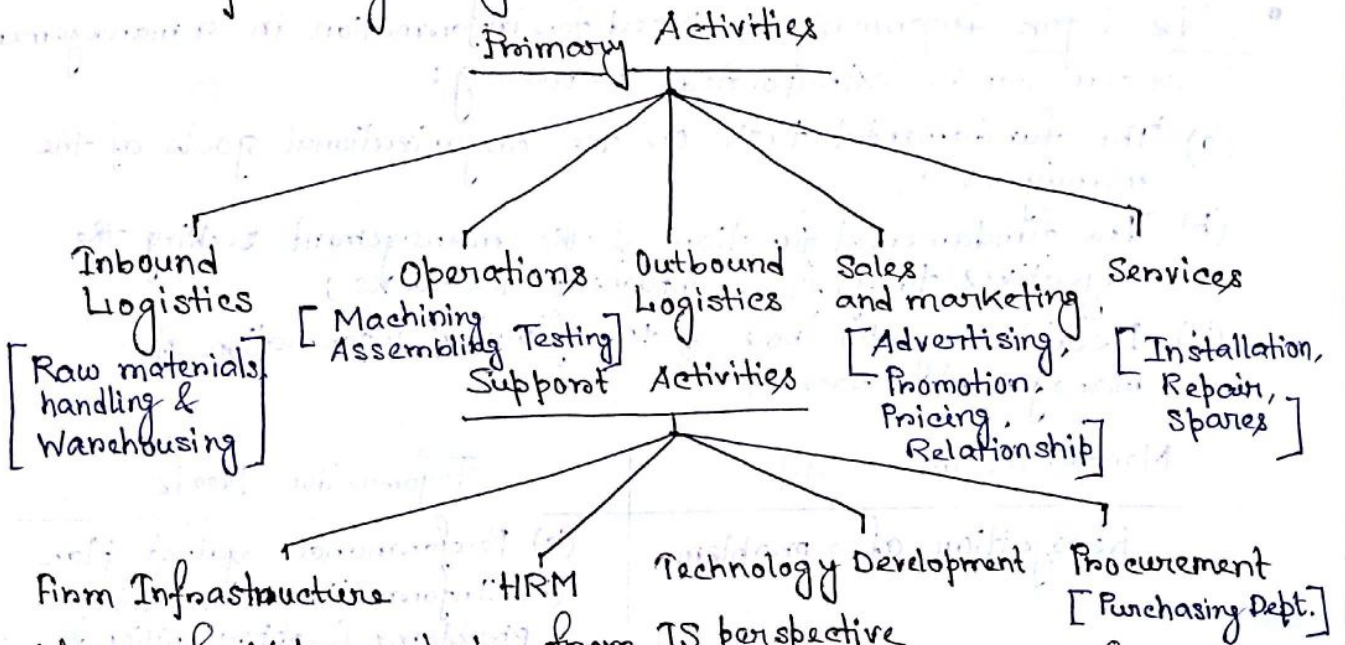 Primary Activities
Inbound Logistics
[Raw materials, handling & Warehousing]
Operations
[Machining Assembling Testing]
Outbound Logistics
Sales and marketing
[Advertising, Promotion, Pricing, Relationship]
Services
[Installation, Repair, Spares]
Support Activities
Firm Infrastructure
HRM
Technology Development
Procurement
[Purchasing Dept.]
from IS perspective